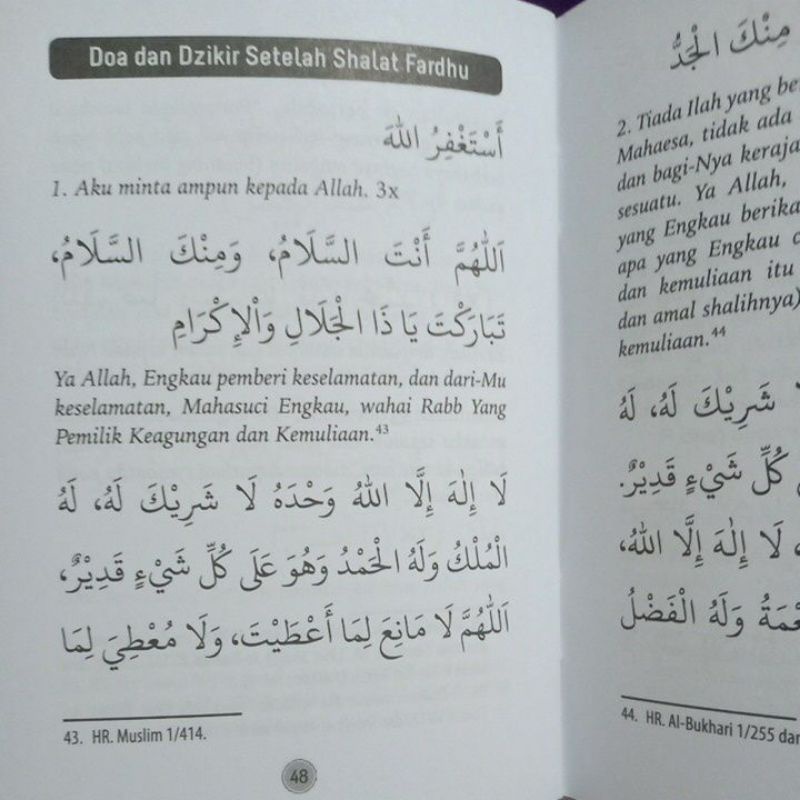 Doa dan Dzikir Setelah Shalat Fardhu
أَسْتَغْفِرُ اللهَ
1. Aku minta ampun kepada Allah. 3x
اَللّٰهُمَّ أَنْتَ السَّلَامُ، وَمِنْكَ السَّلَامُ،
تَبَارَكْتَ يَا ذَا الْجَلَالِ وَالْإِكْرَامِ
Ya Allah, Engkau pemberi keselamatan, dan dari-Mu
keselamatan, Mahasuci Engkau, wahai Rabb Yang
Pemilik Keagungan dan Kemuliaan.43
لَا إِلٰهَ إِلَّا اللهُ وَحْدَهُ لَا شَرِيْكَ لَهُ، لَهُ
الْمُلْكُ وَلَهُ الْحَمْدُ وَهُوَ عَلَى كُلِّ شَيْءٍ قَدِيْرٌ،
اَللّٰهُمَّ لَا مَانِعَ لِمَا أَعْطَيْتَ، وَلَا مُعْطِيَ لِمَا
43. HR. Muslim 1/414.
48
مِنْكَ الْجَدُّ
2. Tiada Ilah yang
Mahaesa, tidak ada
dan bagi-Nya
sesuatu. Ya Allah,
yang Engkau
apa yang Engkau
dan kemuliaan itu
dan amal shalihnya)
kemuliaan.44
شَرِيْكَ لَهُ، لَهُ
كُلِّ شَيْءٍ قَدِيْرٌ.
لَا إِلٰهَ إِلَّا اللهُ،
وَلَهُ الْفَضْلُ
44. HR. Al-Bukhari 1/255